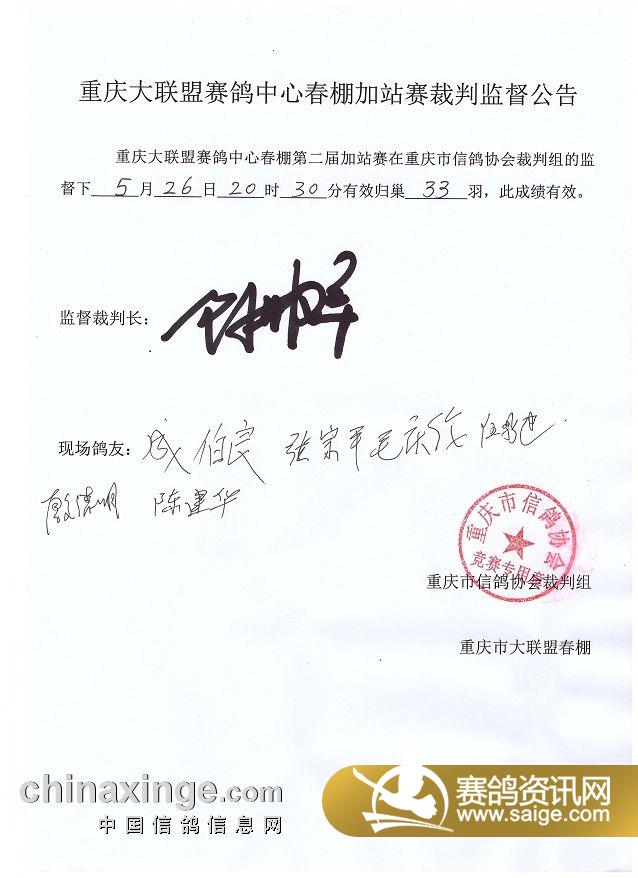 重庆大联盟赛鸽中心春棚加站赛裁判监督公告
重庆大联盟赛鸽中心春棚第二届加站赛在重庆市信鸽协会裁判组的监
督下 5 月 26 日 20 时 30 分有效归巢 33 羽，此成绩有效。
监督裁判长：
现场鸽友： 成伯良 张宗平 毛庆
殷德明 陈建华
重庆市信鸽协会
竞赛专用章
重庆市信鸽协会裁判组
重庆市大联盟春棚
chinaxinge.com
中国信鸽信息网
赛鸽资讯网
www.saige.com